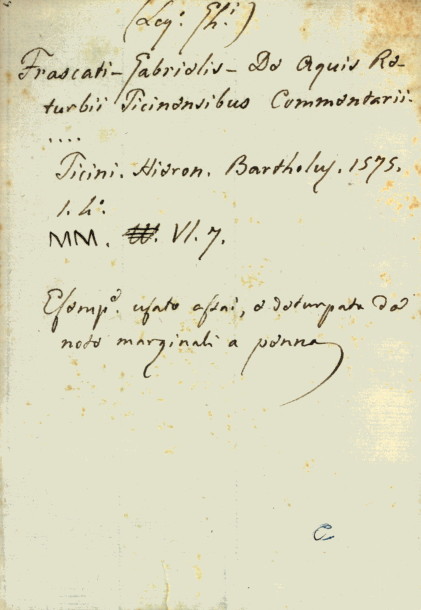 (Leg.º Gh.i)
Frascati - Gabrielis - De Aquis Re-
turbii Ticinensibus Commentarii.
....
Ticini. Hieron. Bartholus. 1575.
1. 4º.
MM. VI. 7.
Esempº. usato assai, e deturpata da
note marginali a penna
C